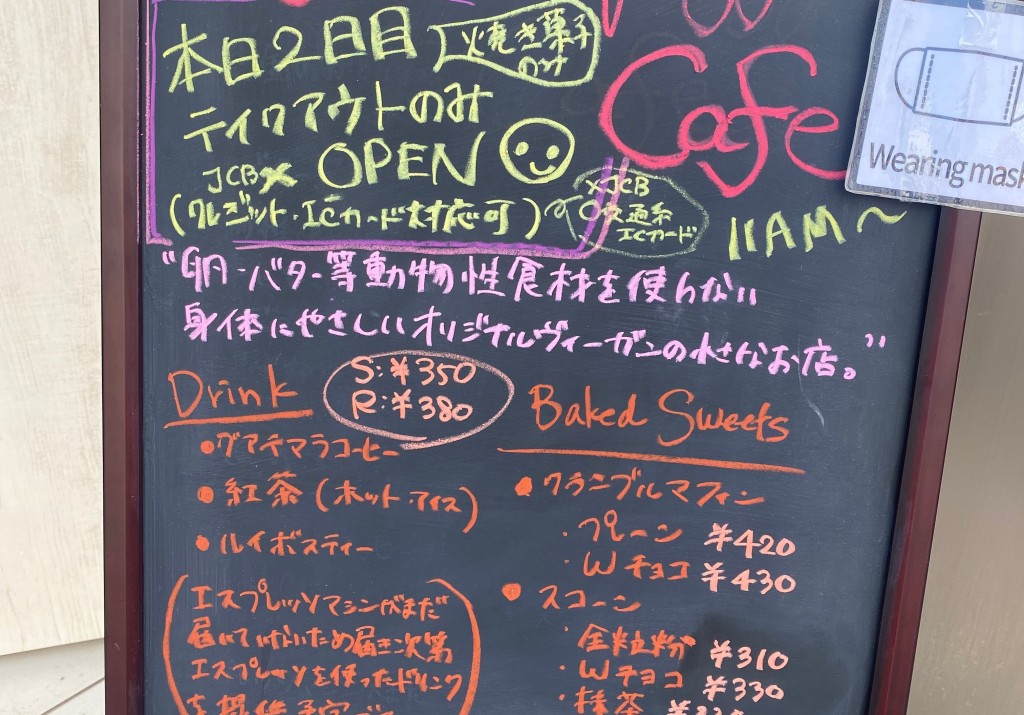 本日2日目
焼き菓子のみ
Cafe
テイクアウトのみ
OPEN
JCB×
(クレジット・ICカード対応可)
×JCB
○交通系
ICカード
11AM～
Wearing mask
"卵・バター等動物性食材を使わない
身体にやさしいオリジナルヴィーガンの小さなお店。"
Drink
S:¥350
R:¥380
・グアテマラコーヒー
・紅茶(ホット・アイス)
・ルイボスティー
(エスプレッソマシンがまだ
届いていないため届き次第
エスプレッソを使ったドリンク
Baked Sweets
・クランブルマフィン
・プレーン ¥420
・Wチョコ ¥430
・スコーン
・全粒粉 ¥310
・Wチョコ ¥330
・抹茶